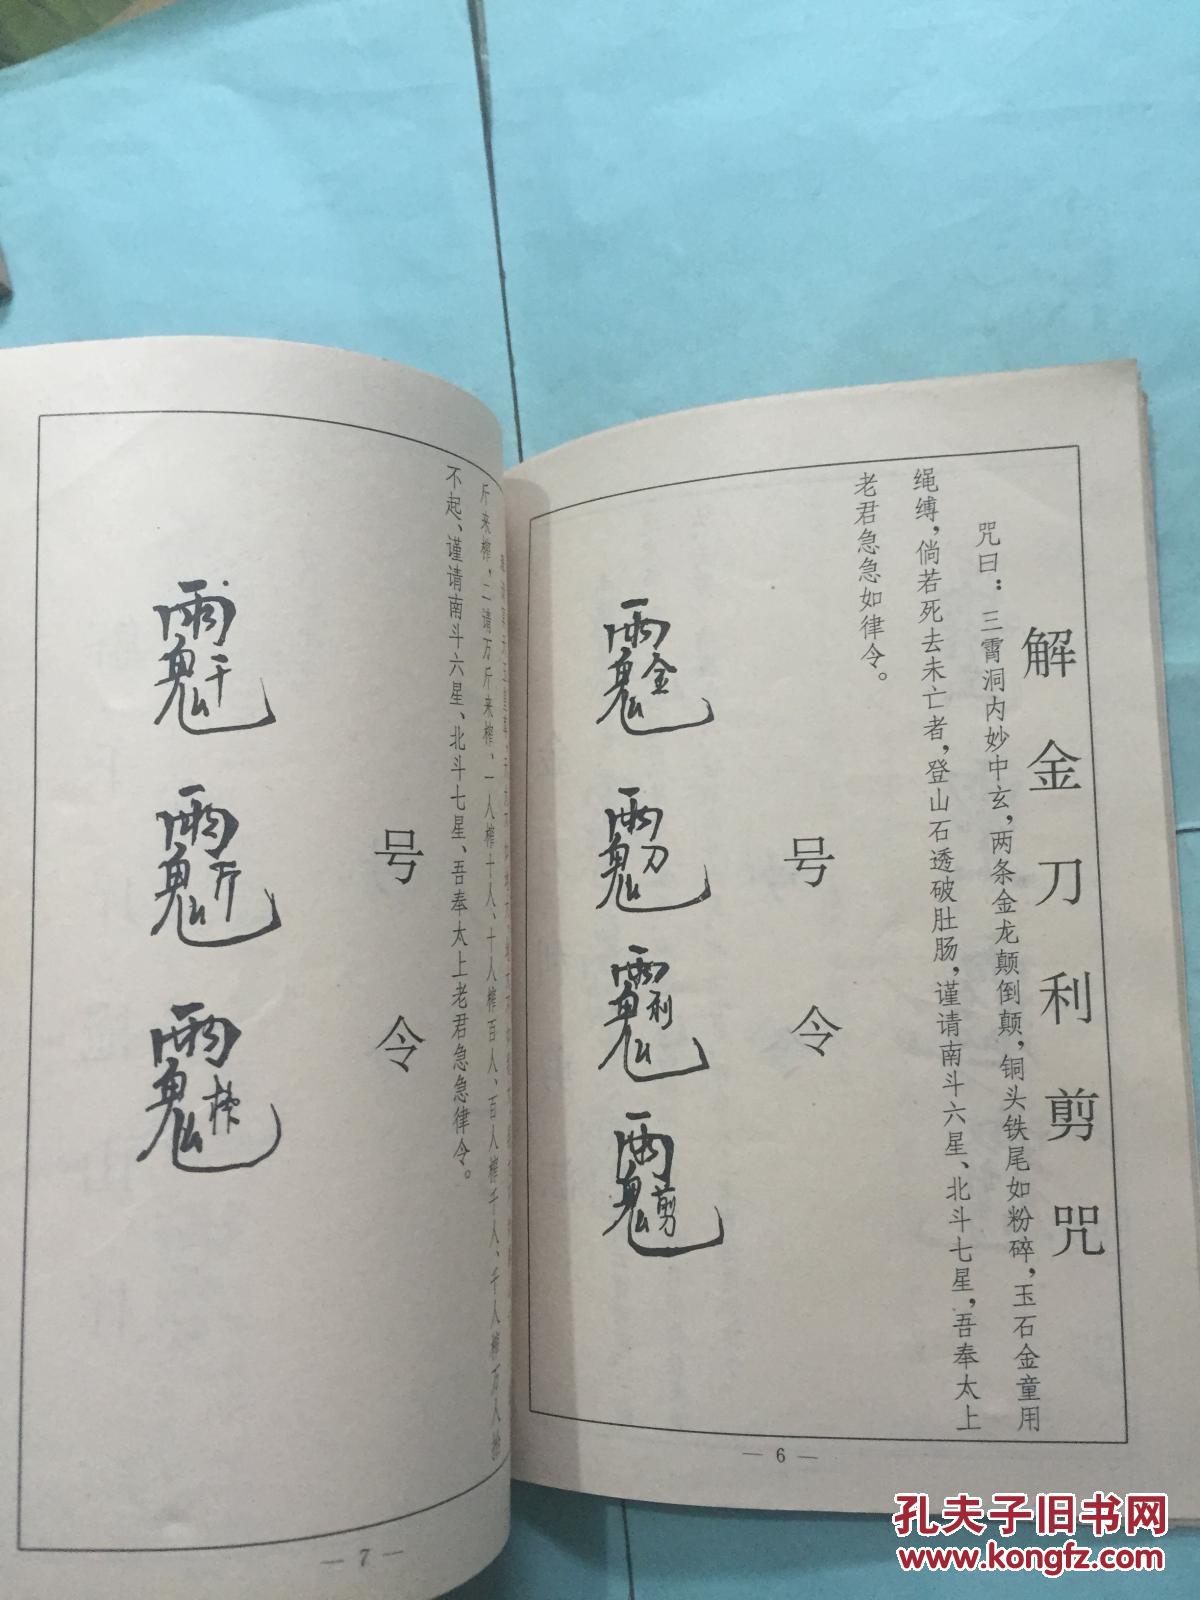 解金刀利剪咒
咒曰：三霄洞内妙中玄，两条金龙颠倒颠，铜头铁尾如粉碎，玉石金童用
绳缚，倘若死去未亡者，登山石透破肚肠，谨请南斗六星、北斗七星，吾奉太上
老君急急如律令。
号令
— 6 —
斤来榨，二请万斤来榨、一人榨十人、十人榨百人、百人榨千人、千人榨万人抬
不起、谨请南斗六星、北斗七星、吾奉太上老君急急律令。
号令
— 7 —
孔夫子旧书网
www.kongfz.com